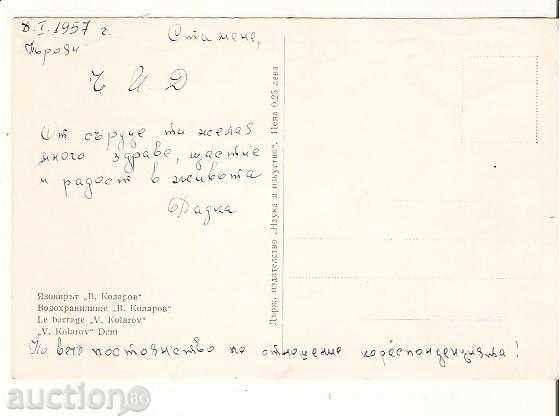 8. I. 1957 г.
Троян
Стамене,
Ч И Д
От сърце ти желая
много здраве, щастие
и радост в живота
Радка
Язовирът „В. Коларов“
Водохранилище „В. Коларов“
Le barrage „V. Kolarov“
„V. Kolarov“ Dam
постоянство по отношение кореспонденцията!
Държ. издателство „Наука и изкуство“. Цена 0,25 лева
auction.BG